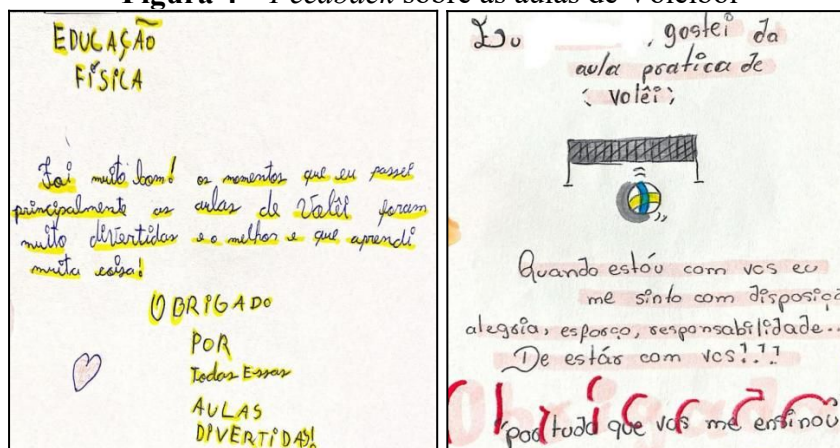 Figura 4 - Feedback sobre as aulas de Voleibol
EDUCAÇÃO
FÍSICA
Foi muito bom! os momentos que eu passei
principalmente as aulas de Volêi foram
muito divertidas e o melhor e que aprendi
muita coisa!
OBRIGADO
POR
Todas Essas
AULAS
DIVERTIDAS!
Eu , gostei da
aula pratica de
volêi;
Quando estóu com vcs eu
me sinto com disposiçã
alegria, esforço, responsabilidade...
De estár com vcs!??
Obrigado
por tudo que vcs me ensinou